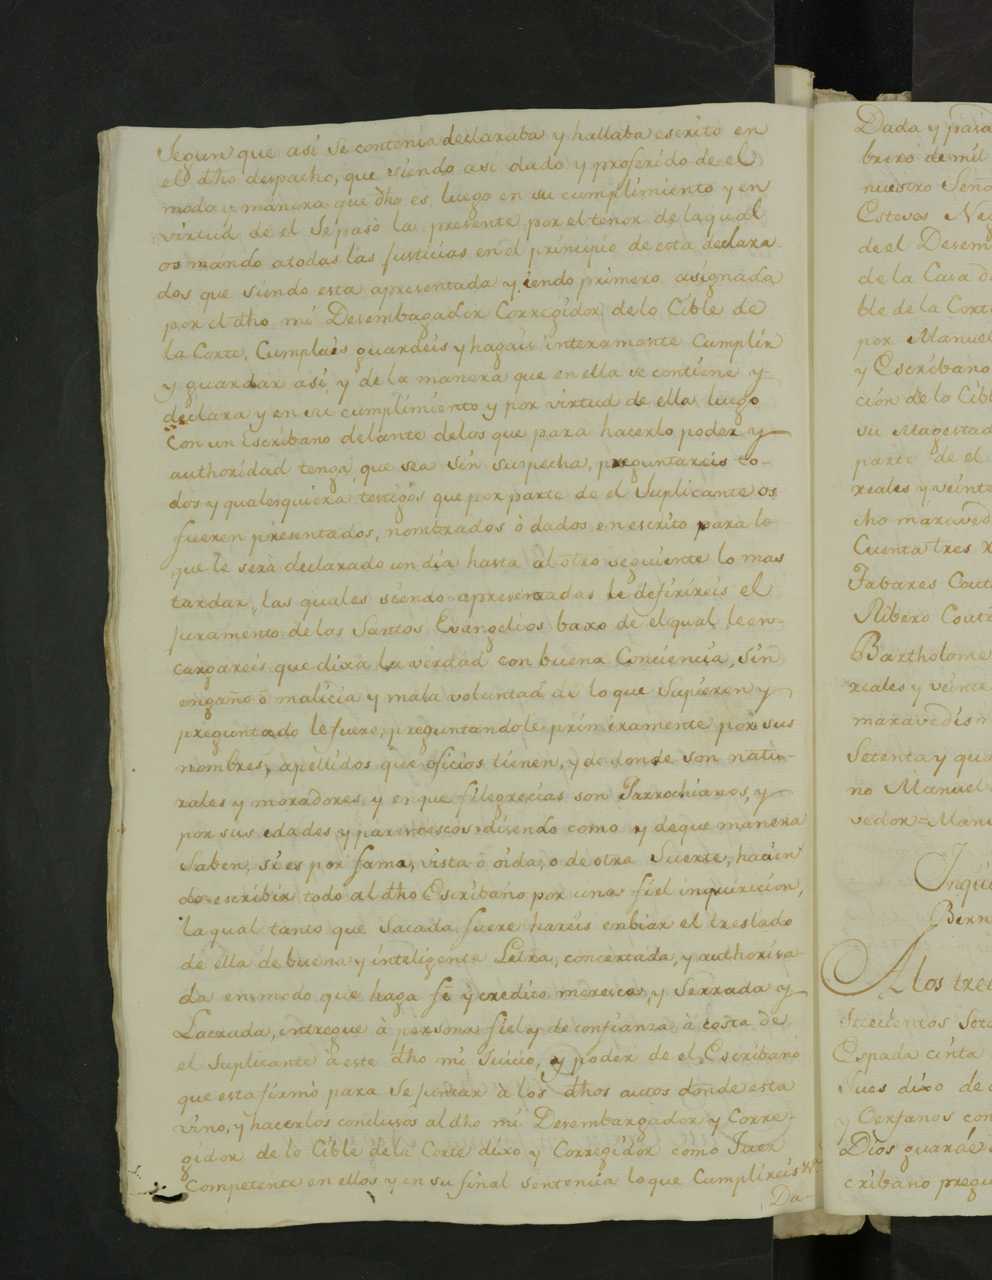 Segun que asi se contenia declaraba y hallaba escrito en
el dho despacho, que siendo asi dado y proferido de el
modo y manera que dho es, luego en su cumplimiento y en
virtud de el se pasó la presente por el tenor de la qual
os mando a todas las Justicias en el principio de esta declara
dos que siendo esta apresentada y iendo primero asignada
por el dho mi Desembagador Corregidor de lo Cible de
la Corte, Cumplais guardeis y hagais interamente Cumplir
y guardar asi y de la manera que en ella se contiene y
declara y en su cumplimiento y por virtud de ella luego
con un Escribano delante de los que para hacerlo poder y
authoridad tenga que sea sin suspecha, preguntareis to-
dos y qualesquiera testigos que por parte de el Suplicante os
fueren presentados, nombrados ò dados en escrito para lo
que le será declarado un dia hasta al otro seguiente lo mas
tardar, las quales siendo apresentadas le defirireis el
Juramento de los Santos Evangelios baxo de el qual le en-
cargareis que dixa la verdad con buena Conciencia, sin
engaño ò malicia y mala voluntad de lo que Supieren y
preguntado le fuere, preguntandole primeramente por sus
nombres, apellidos que oficios tienen, y de donde son natu-
rales y moradores y en que filegrecias son Parrochianos, y
por sus edades y parentescos diciendo como y de que manera
Saben, si es por fama, vista ò oida, o de otra Suerte, hacien
do escribir todo al dho Escribano por una fiel inquiricion,
la qual tanto que Sacada fuere hareis enbiar el treslado
de ella de buena y inteligente Letra, concertada, y authoriza
da en modo que haga fe y credito meresca, y Serrada y
Lacruda, intregue à persona fiel y de confianza à costa de
el Suplicante à este dho mi Juicio, y poder de el Escribano
que esta firmó para se juntar à los dhos autos donde esta
vino, y hacerlos conclusos al dho mi Desembargador y Corre-
gidor de lo Cible de la Corte dixo y Corregidor como Juez
Competente en ellos y en su final sentencia lo que Cumplireis
Da-
Dada y para
brero de mil
nuestro Seño
Estevas Ne
de el Desem
de la Casa d
ble de la Cort
por Manuel
y Escribano
ción de lo Cibl
su Magestad
parte de el
reales y veinte
cho maraved
Cuenta tres
Tabares Cout
Ribero Cout
Bartholome
reales y veinte
maravedis
Setenta y qua
no Manuel
vedor = Manu
Inqui
Bern
A los trec
Setecientos Sete
Espada cinta
Jues dixo de
y Cerfanos con
Dios guarde
cribano pregu